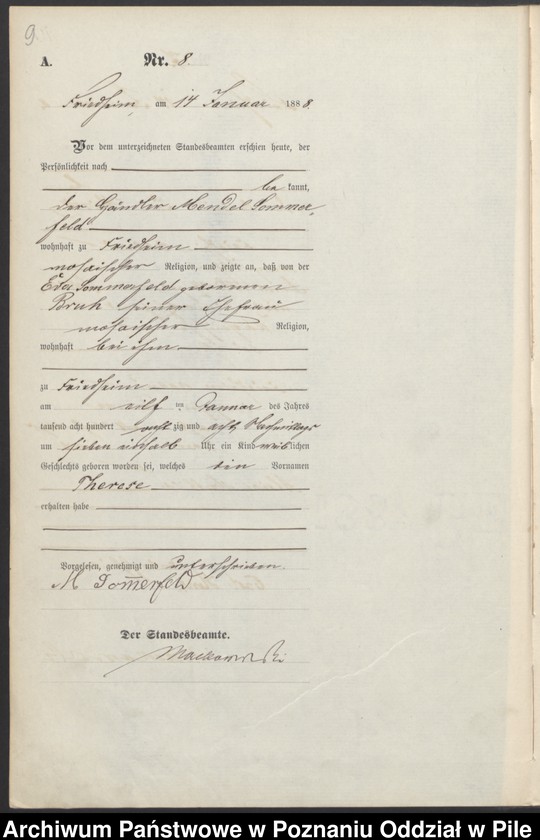 9.
A. Nr. 8.
Friedheim, am 14 Januar 1888.
Vor dem unterzeichneten Standesbeamten erschien heute, der
Persönlichkeit nach
bekannt,
der Händler Mendel Sommer-
feld
wohnhaft zu Friedheim
mosaischer Religion, und zeigte an, daß von der
Sommerfeld geborenen
Bruh seiner Ehefrau
mosaischer Religion,
wohnhaft bei ihm
zu Friedheim
am eilf ten Januar des Jahres
tausend acht hundert achtzig und acht Nachmittags
um sieben einhalb Uhr ein Kind weiblichen
Geschlechts geboren worden sei, welches den Vornamen
Therese
erhalten habe
Vorgelesen, genehmigt und unterschrieben.
M Som̅erfeld
Der Standesbeamte.
Mackowski
Archiwum Państwowe w Poznaniu Oddział w Pile